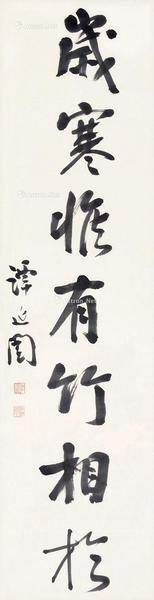 歲寒惟有竹相於
譚延闓